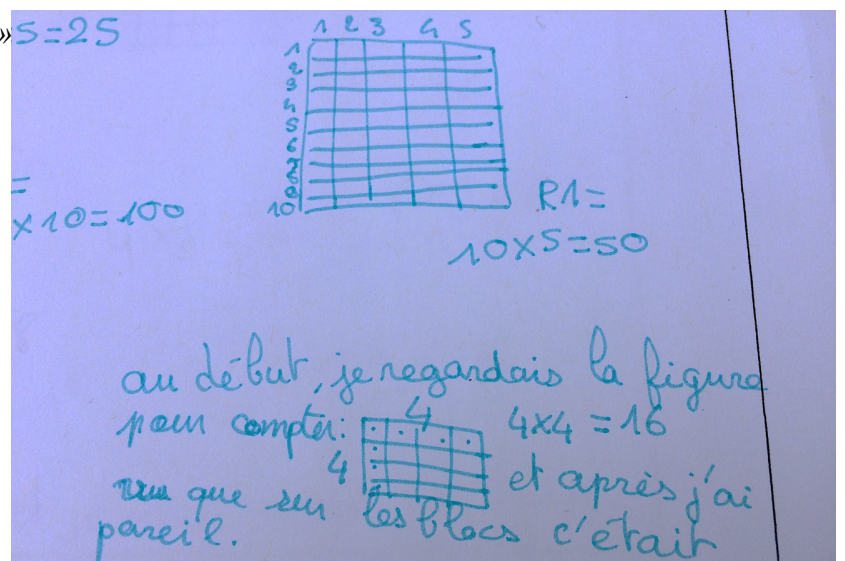 » 5=25
1 2 3 4 5
1
2
3
4
5
6
7
8
9
10
=
×10=100
R1=
10×5=50
au début, je regardais la figure
pour compter: 4 4×4=16
4 et après j'ai
vu que sur les blocs c'était
pareil.